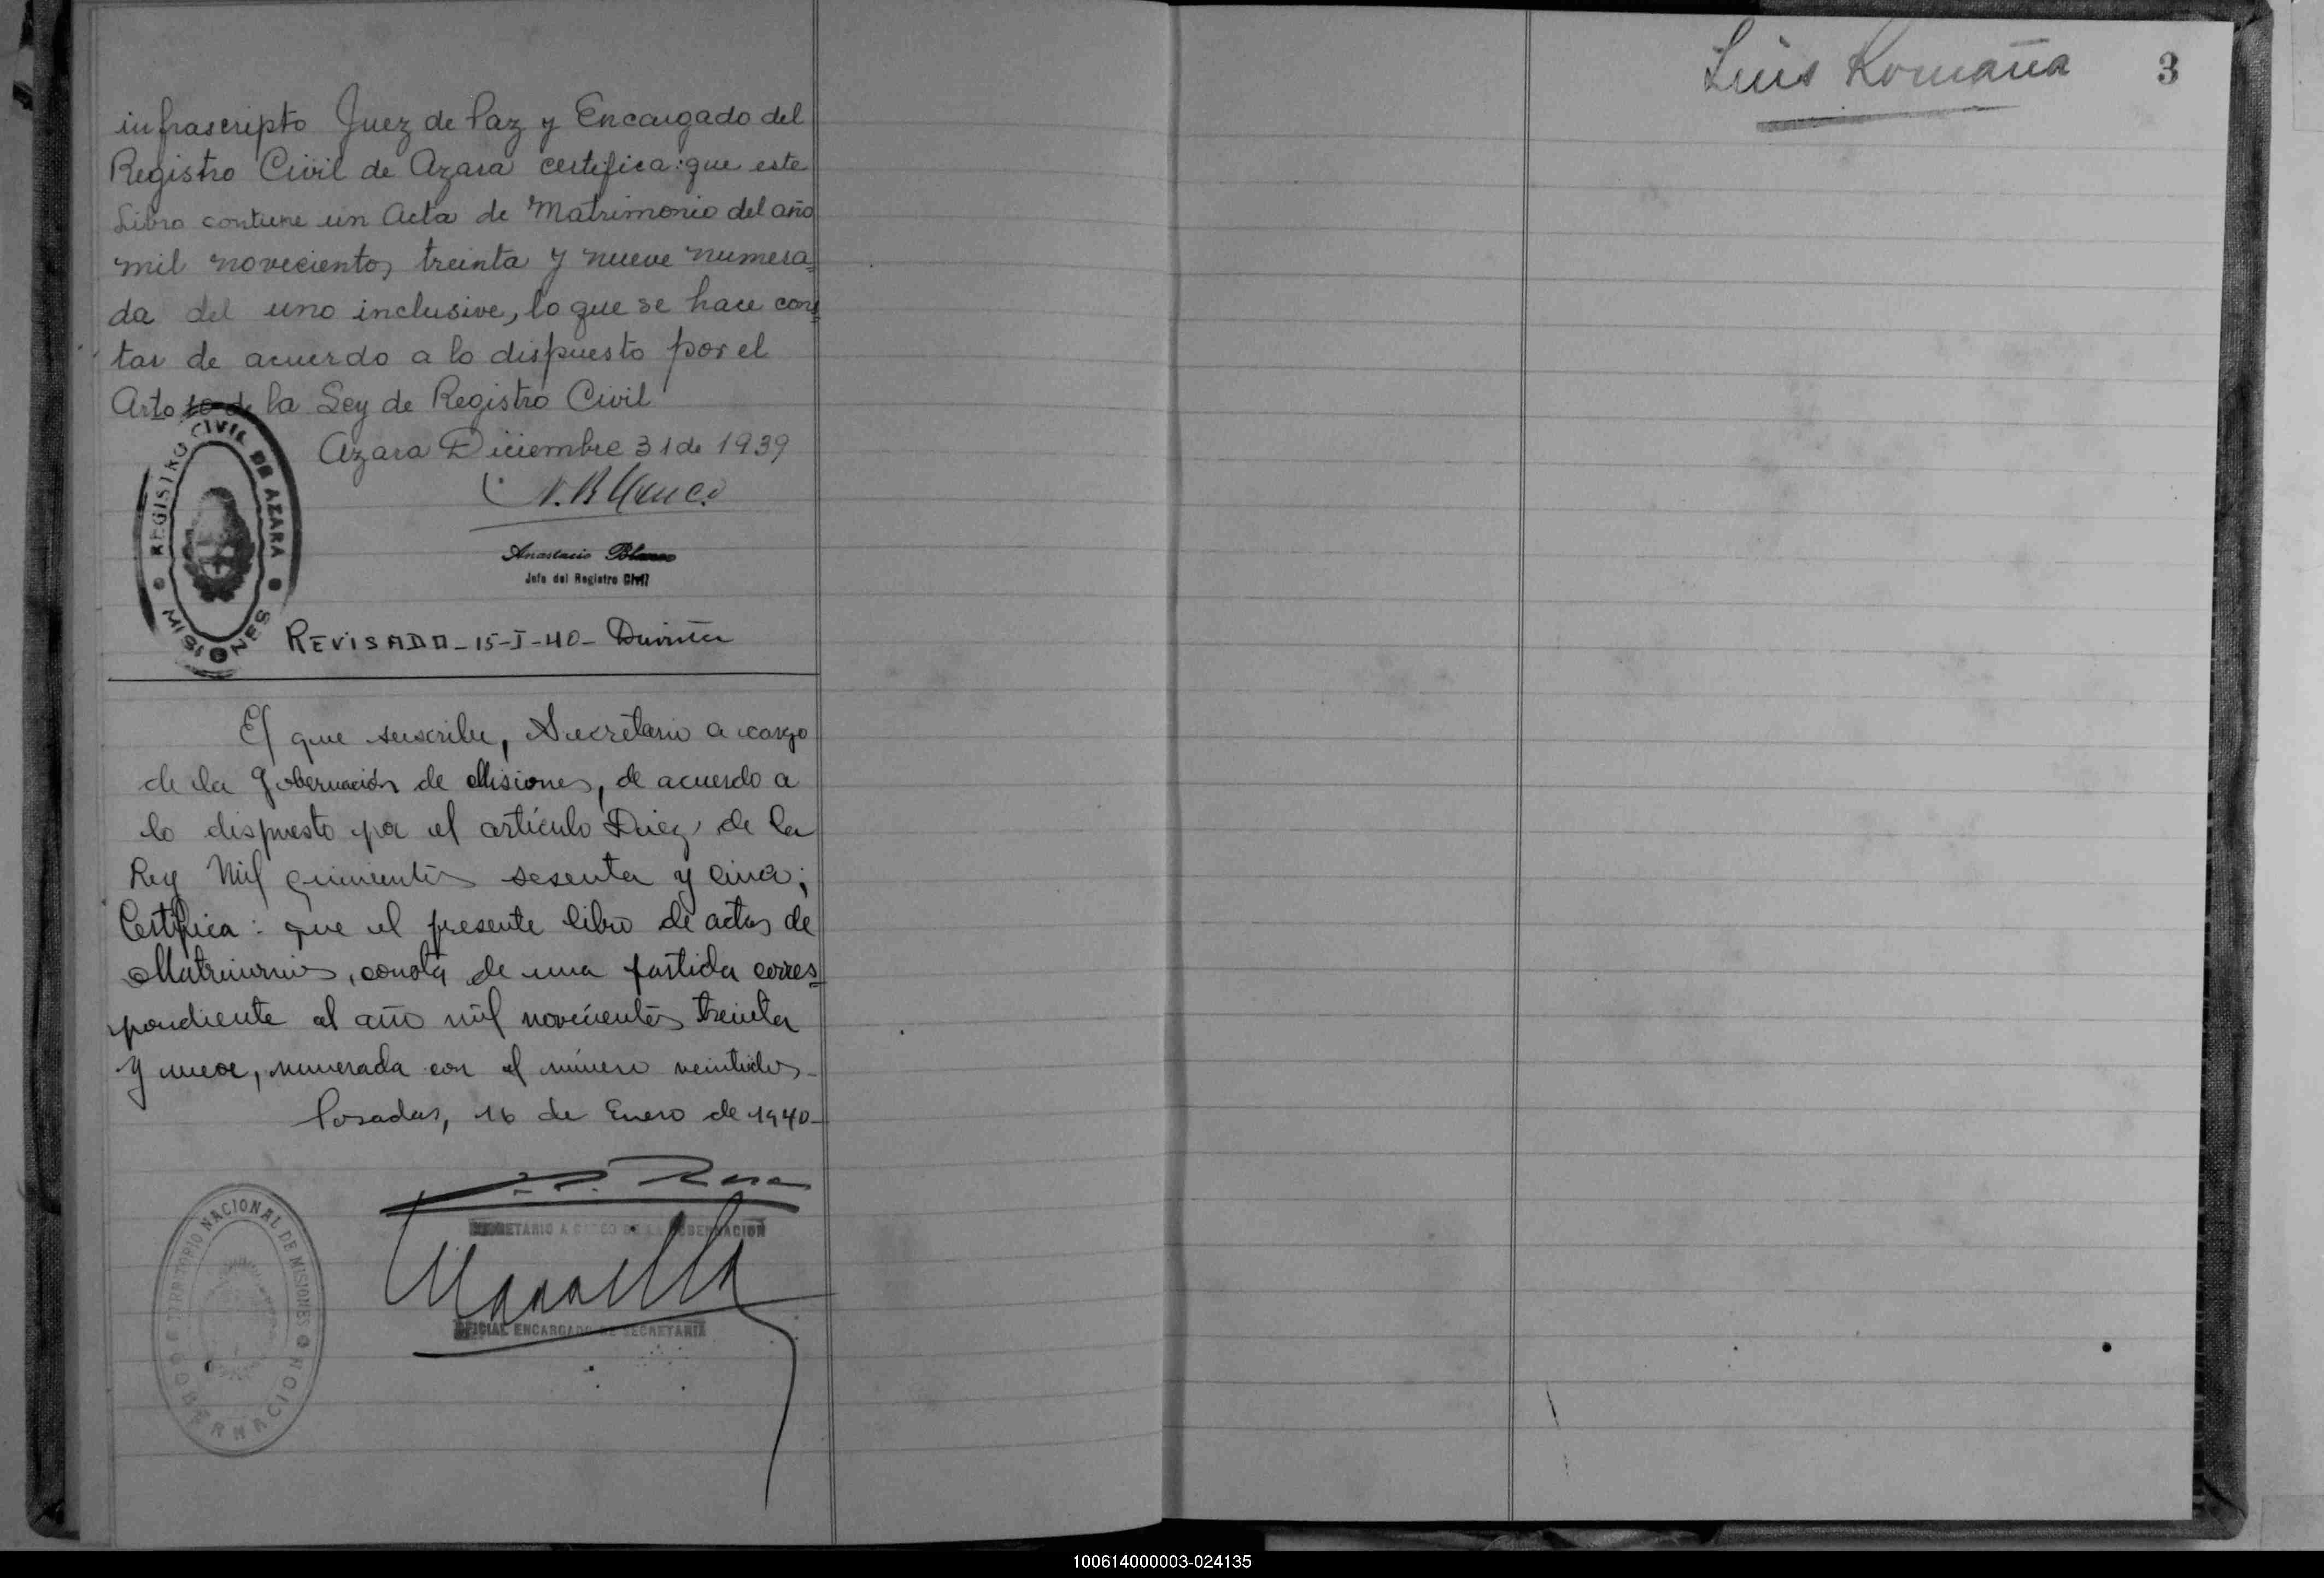 infrascripto Juez de Paz y Encargado del
Registro Civil de Azara certifica: que este
Libro contiene un Acta de Matrimonio del año
mil novecientos treinta y nueve numera=
da del uno inclusive, lo que se hace cons=
tar de acuerdo a lo dispuesto por el
Arto 10 de la Ley de Registro Civil
Azara Diciembre 31 de 1939
A. Blanco
Anastacio Blanco
Jefe del Registro Civil
REGISTRO CIVIL DE AZARA
MISIONES
REVISADO - 15-I-40-
El que suscribe, Secretario a cargo
de la Gobernación de Misiones, de acuerdo a
lo dispuesto por el artículo Diez de la
Ley Mil quinientos sesenta y cinco;
Certifica: que el presente libro de actas de
Matrimonios, consta de una partida corres=
pondiente al año mil novecientos treinta
y nueve, numerada con el número veintidos-
Posadas, 16 de Enero de 1940-
SECRETARIO A CARGO DE LA GOBERNACION
OFICIAL ENCARGADO DE SECRETARIA
TERRITORIO NACIONAL DE MISIONES
GOBERNACION
Luis Romaña
3
100614000003-024135